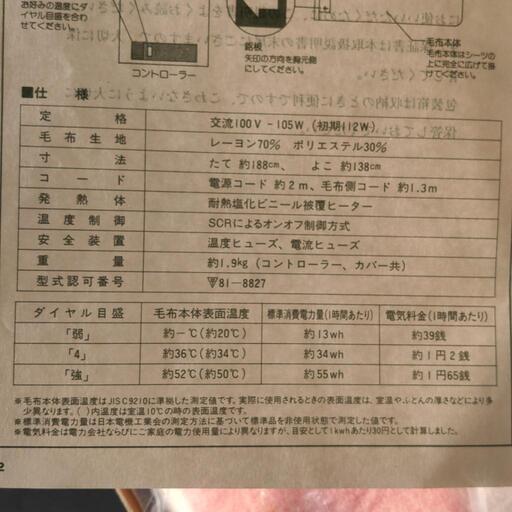 お好みの温度にダ
イヤル目盛を合わ
せてください。
コントローラー
銘板
矢印の方向を胸元側
にしてください。
毛布本体
毛布本体はシーツの
上に完全に広げて掛
けてください。
■仕 様
定 格 交流100V-105W(初期112W)
毛布生地 レーヨン70% ポリエステル30%
寸 法 たて 約188cm、 よこ 約138cm
コード 電源コード 約2m、毛布側コード 約1.3m
発熱体 耐熱塩化ビニール被覆ヒーター
温度制御 SCRによるオンオフ制御方式
安全装置 温度ヒューズ、電流ヒューズ
重 量 約1.9kg(コントローラー、カバー共)
型式認可番号 81-8827
ダイヤル目盛 毛布本体表面温度 標準消費電力量(1時間あたり) 電気料金(1時間あたり)
「弱」 約-℃(約20℃) 約13wh 約39銭
「4」 約36℃(約34℃) 約34wh 約1円2銭
「強」 約52℃(約50℃) 約55wh 約1円65銭
※毛布本体表面温度はJISC9210に準拠した測定値です。実際に使用されるときの表面温度は、室温やふとんの厚さなどにより多
少異なります。( )内温度は室温10℃の時の表面温度です。
※標準消費電力量は日本電機工業会の測定方法に基づいて標準品を非使用状態で測定した値です。
※電気料金は電力会社ならびにご家庭の電力使用量により異なりますが、目安として1kwhあたり30円として計算しました。
2